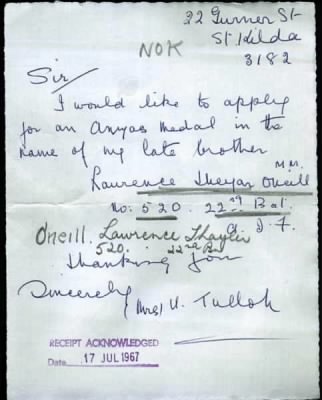 22 Gurner St
St Kilda
3182
NOK
Sir/
I would like to apply
for an Anzac Medal in the
name of my late brother
M.M.
Laurence Oneill
No. 520. 22nd Bat.
A. I. F.
Oneill. Lawrence Thayer
520. 22nd Bn
Thanking you
Sincerely
Mrs U. Tulloh
RECEIPT ACKNOWLEDGED
Date 17 JUL 1967